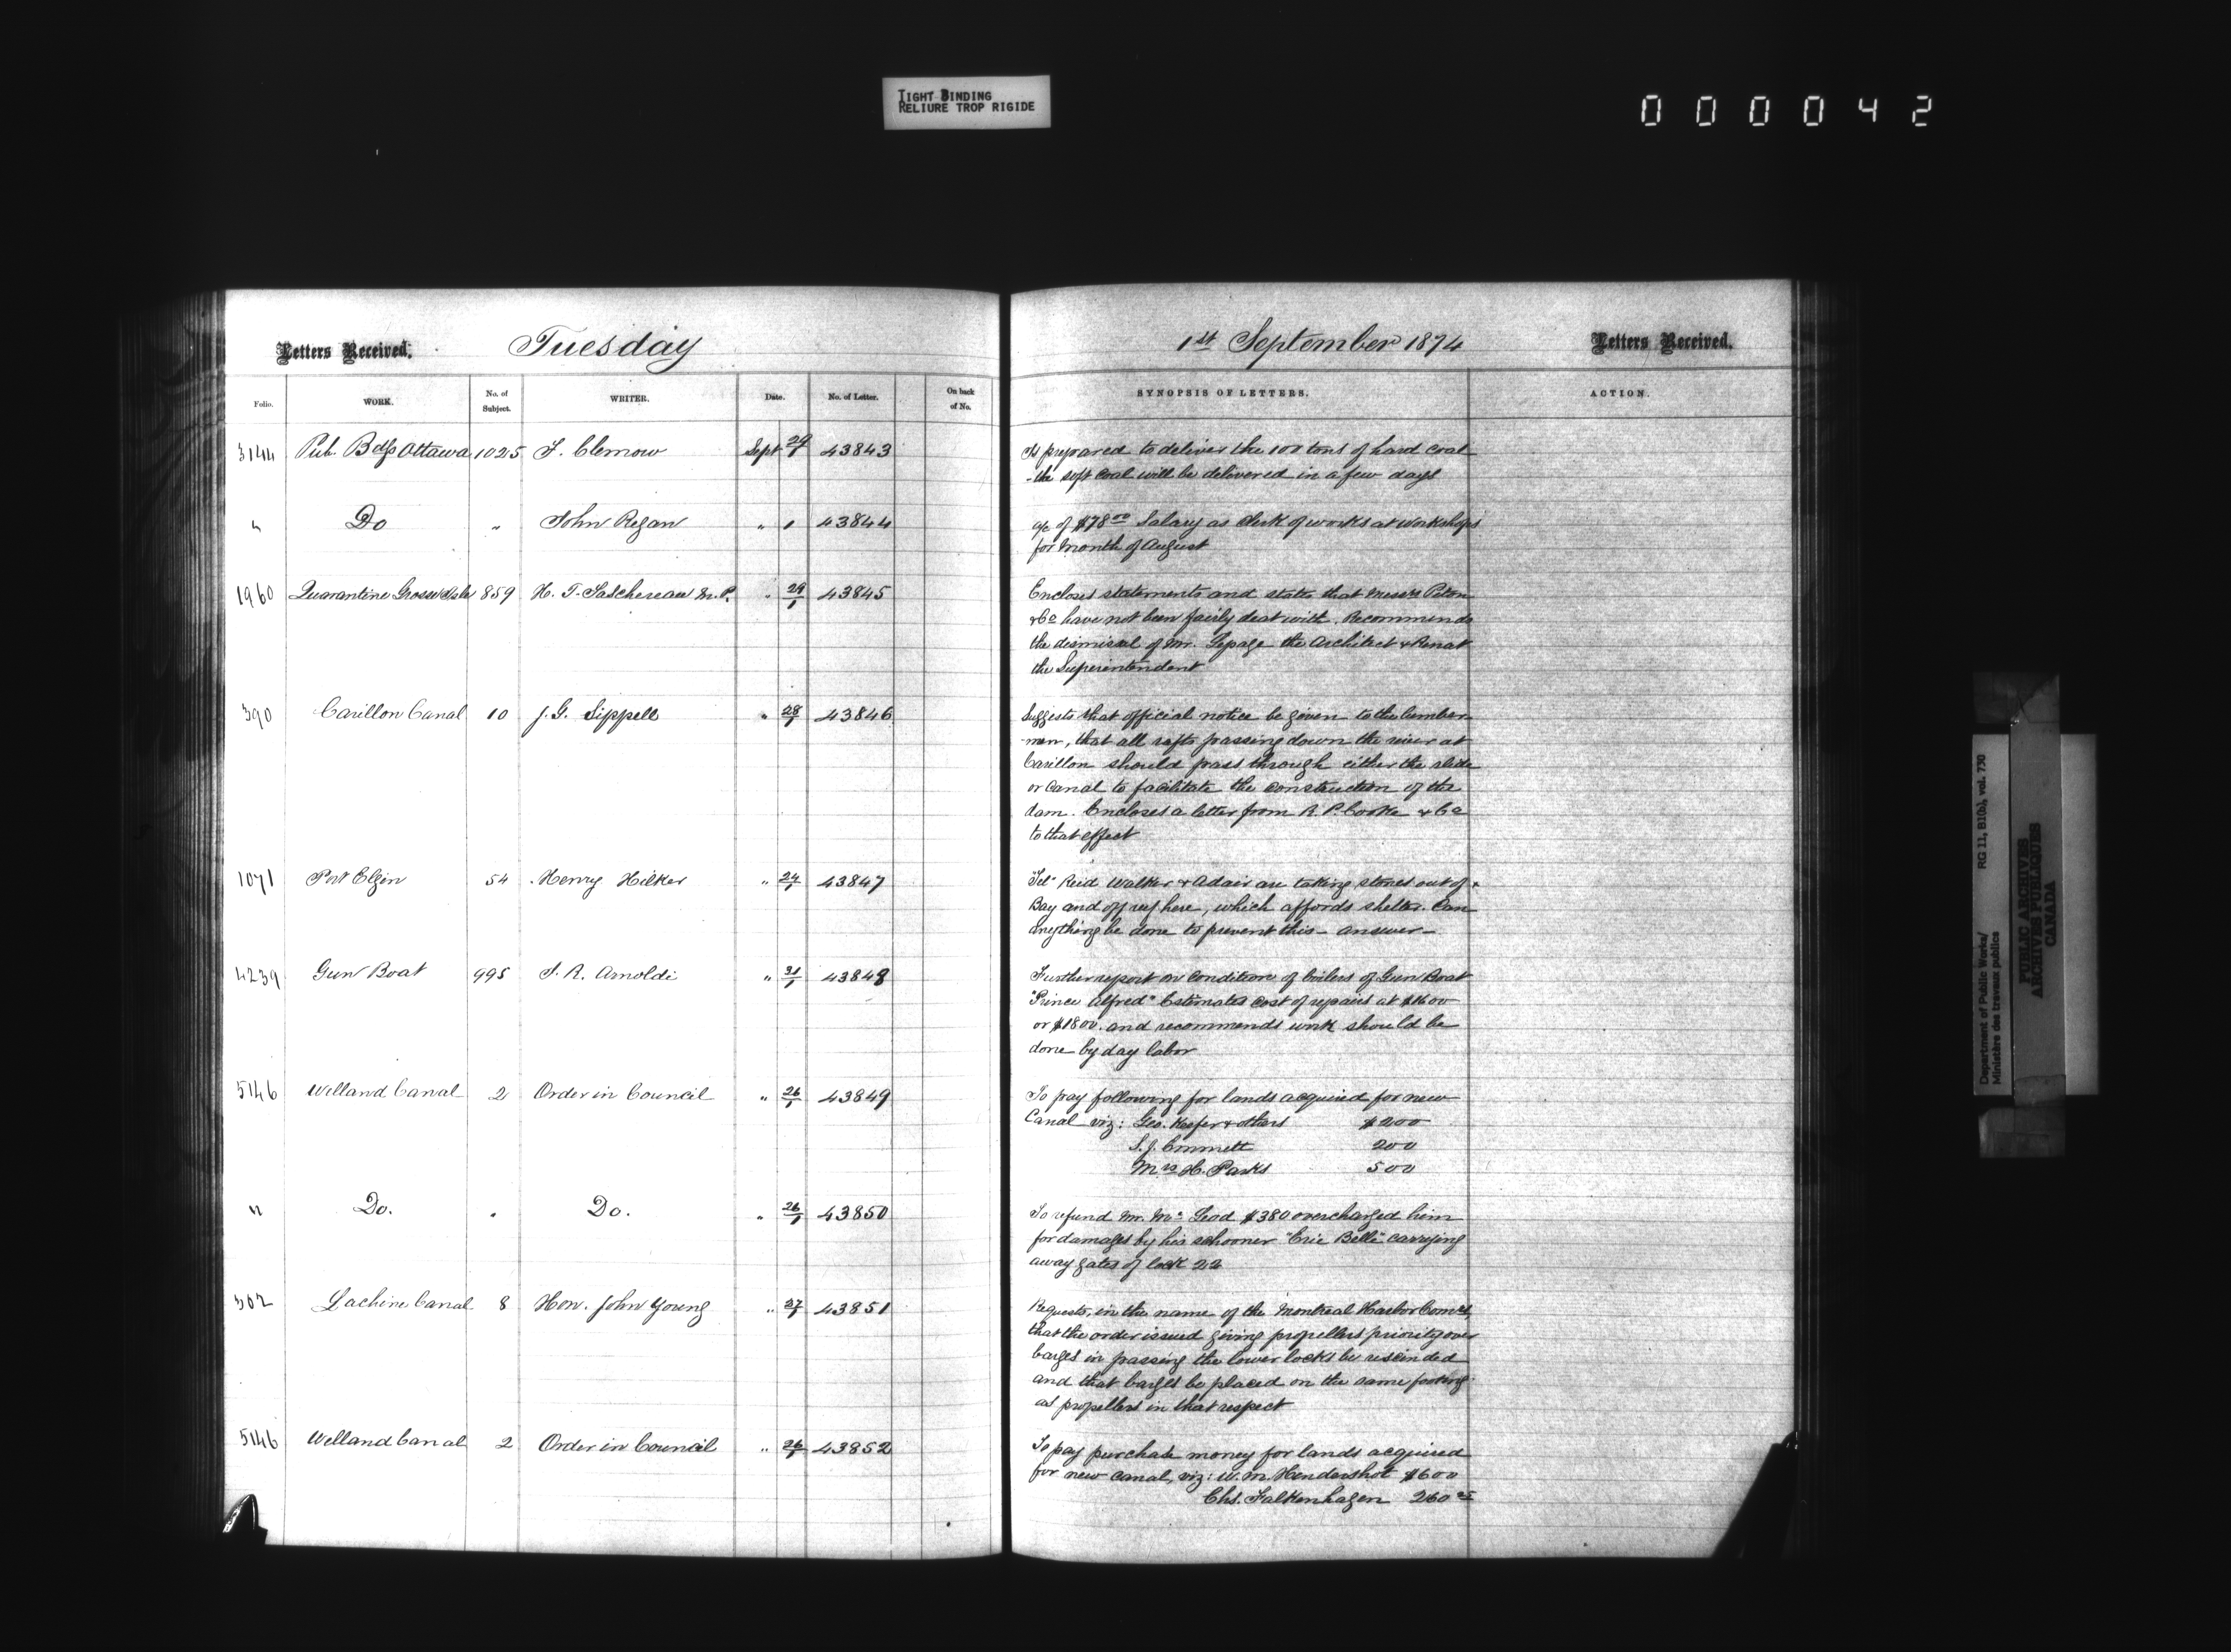 TIGHT BINDING
RELIURE TROP RIGIDE
000042
Letters Received. Tuesday
Folio. WORK. No. of Subject. WRITER. Date. No. of Letter. On back of No.
3144 Pub. Bdgs Ottawa 1025 F. Clemow Sept 29/1 43843
" Do " John Regan " 1 43844
1960 Quarantine Grosse Isle 859 H. T. Taschereau M.P. " 29/1 43845
390 Carillon Canal 10 J. G. Sippell " 28/1 43846
1071 Port Elgin 54 Henry Hilker " 24/1 43847
4239 Gun Boat 995 J. R. Arnoldi " 31/1 43848
5146 Welland Canal 2 Order in Council " 26/1 43849
" Do. " Do. " 26/1 43850
302 Lachine Canal 8 Hon. John Young " 27/1 43851
5146 Welland Canal 2 Order in Council " 26/1 43852
1st September 1874 Letters Received.
SYNOPSIS OF LETTERS. ACTION.
Is prepared to deliver the 100 tons of hard coal
- the soft coal will be delivered in a few days
a/c of $78.00 Salary as Clerk of works at Workshops
for Month of August
Encloses statements and states that Messrs Piton
& Co have not been fairly dealt with. Recommends
the dismissal of Mr. Lepage the Architect &
the Superintendent
Suggests that official notice be given to the lumber
-men, that all rafts passing down the river at
Carillon should pass through either the slide
or Canal to facilitate the construction of the
dam. Encloses a letter from R. P. Cooke & Co
to that effect
"Tel" Reid Walker & Adair are taking stones out of
Bay and off reef here, which affords shelter. Can
anything be done to prevent this - answer -
Further report on condition of boilers of Gun Boat
"Prince Alfred" Estimates cost of repairs at $1600
or $1800. and recommends work should be
done by day labor
To pay following for lands acquired for new
Canal viz: Geo. Keefer & others $200
S. J. Emmett 200
Mrs H. Parks 500
To refund Mr. McLeod $380 overcharged him
for damages by his schooner "Erie Belle" carrying
away gates of lock 22
Requests, in the name of the Montreal Harbor Comrs,
that the order issued giving propellers priority over
barges in passing the lower locks be rescinded
and that barges be placed on the same footing
as propellers in that respect
To pay purchase money for lands acquired
for new canal, viz: W. M. Hendershot $600
Chs. Falkenhagen 260
Department of Public Works/ RG 11, B1(b), vol. 730
Ministère des travaux publics
PUBLIC ARCHIVES
ARCHIVES PUBLIQUES
CANADA